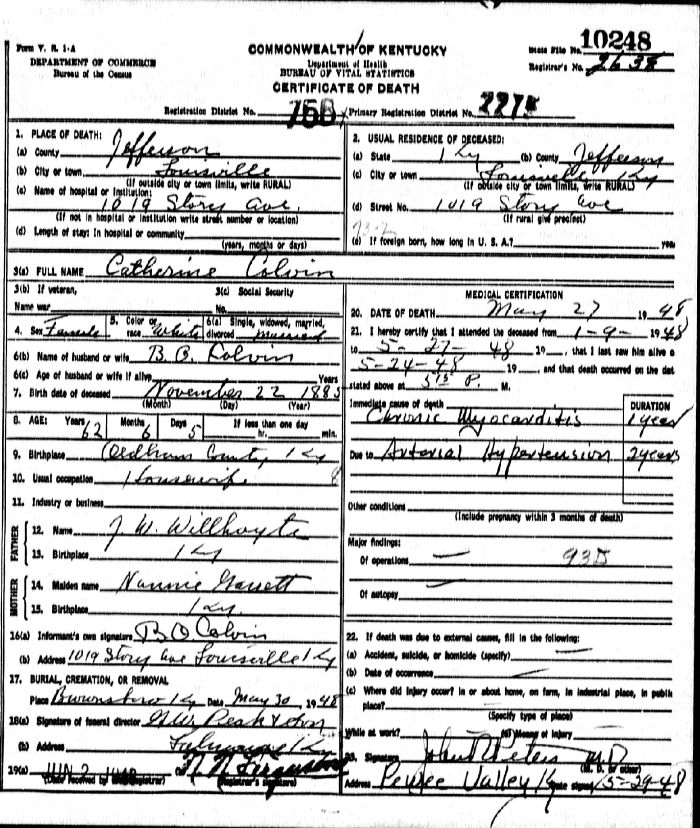 Form V. S. 1-A
DEPARTMENT OF COMMERCE
Bureau of the Census
COMMONWEALTH OF KENTUCKY
Department of Health
BUREAU OF VITAL STATISTICS
CERTIFICATE OF DEATH
State File No. 10248
Registrar's No. 2638
Registration District No. 750 Primary Registration District No. 2275
1. PLACE OF DEATH:
(a) County Jefferson
(b) City or town Louisville
(If outside city or town limits, write RURAL)
(c) Name of hospital or institution:
1019 Story Ave.
(If not in hospital or institution write street number or location)
(d) Length of stay: In hospital or community
(years, months or days)
2. USUAL RESIDENCE OF DECEASED:
(a) State Ky (b) County Jefferson
(c) City or town Louisville Ky
(If outside city or town limits, write RURAL)
(d) Street No. 1019 Story Ave
(If rural give precinct)
(e) If foreign born, how long in U. S. A.? years
3(a) FULL NAME Catherine Colvin
3(b) If veteran, 3(c) Social Security
Name war No.
4. Sex Female 5. Color or race White 6(a) Single, widowed, married, divorced Married
6(b) Name of husband or wife B. O. Colvin
6(c) Age of husband or wife if alive Years
7. Birth date of deceased November 22 1885
(Month) (Day) (Year)
8. AGE: Years 62 Months 6 Days 5 If less than one day hr. min.
9. Birthplace Oldham County, Ky
10. Usual occupation Housewife 8
11. Industry or business
FATHER
12. Name J. W. Willhoyte
13. Birthplace Ky
MOTHER
14. Maiden name Nannie Garrett
15. Birthplace Ky.
16(a) Informant's own signature B O Colvin
(b) Address 1019 Story Ave Louisville Ky
17. BURIAL, CREMATION, OR REMOVAL
Place Brownsboro Ky Date May 30, 1948
18(a) Signature of funeral director Peak & Son
(b) Address Ky
19(a) JUN 2 1948 (b)
(Date received by Registrar) (Registrar's signature)
MEDICAL CERTIFICATION
20. DATE OF DEATH May 27 1948
21. I hereby certify that I attended the deceased from 1-9- 1948
to 5-27-48 19, that I last saw him alive o
5-24-48 19 and that death occurred on the dat
stated above at 5 15 P. M.
Immediate cause of death DURATION
Chronic Myocarditis 1 year
Due to Arterial Hypertension 2 years
Other conditions
(Include pregnancy within 3 months of death)
Major findings:
Of operations — 93D
Of autopsy —
22. If death was due to external causes, fill in the following:
(a) Accident, suicide, or homicide (specify)
(b) Date of occurrence
(c) Where did injury occur? In or about home, on farm, in industrial place, in public
place?
(Specify type of place)
While at work? (e) Means of injury
23. Signature John R Peters M.D
(M. D. or other)
Address Pewee Valley Ky Date signed 5-29-48